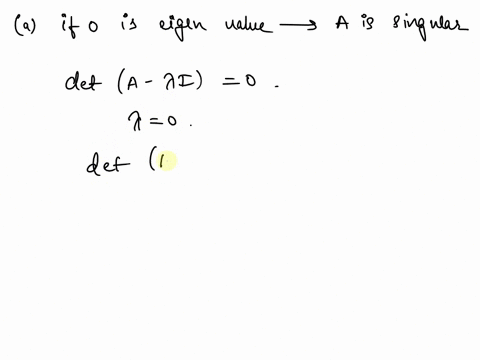 (a) if 0 is eigen value → A is singular
det (A - λI) = 0 .
λ = 0 .
det (